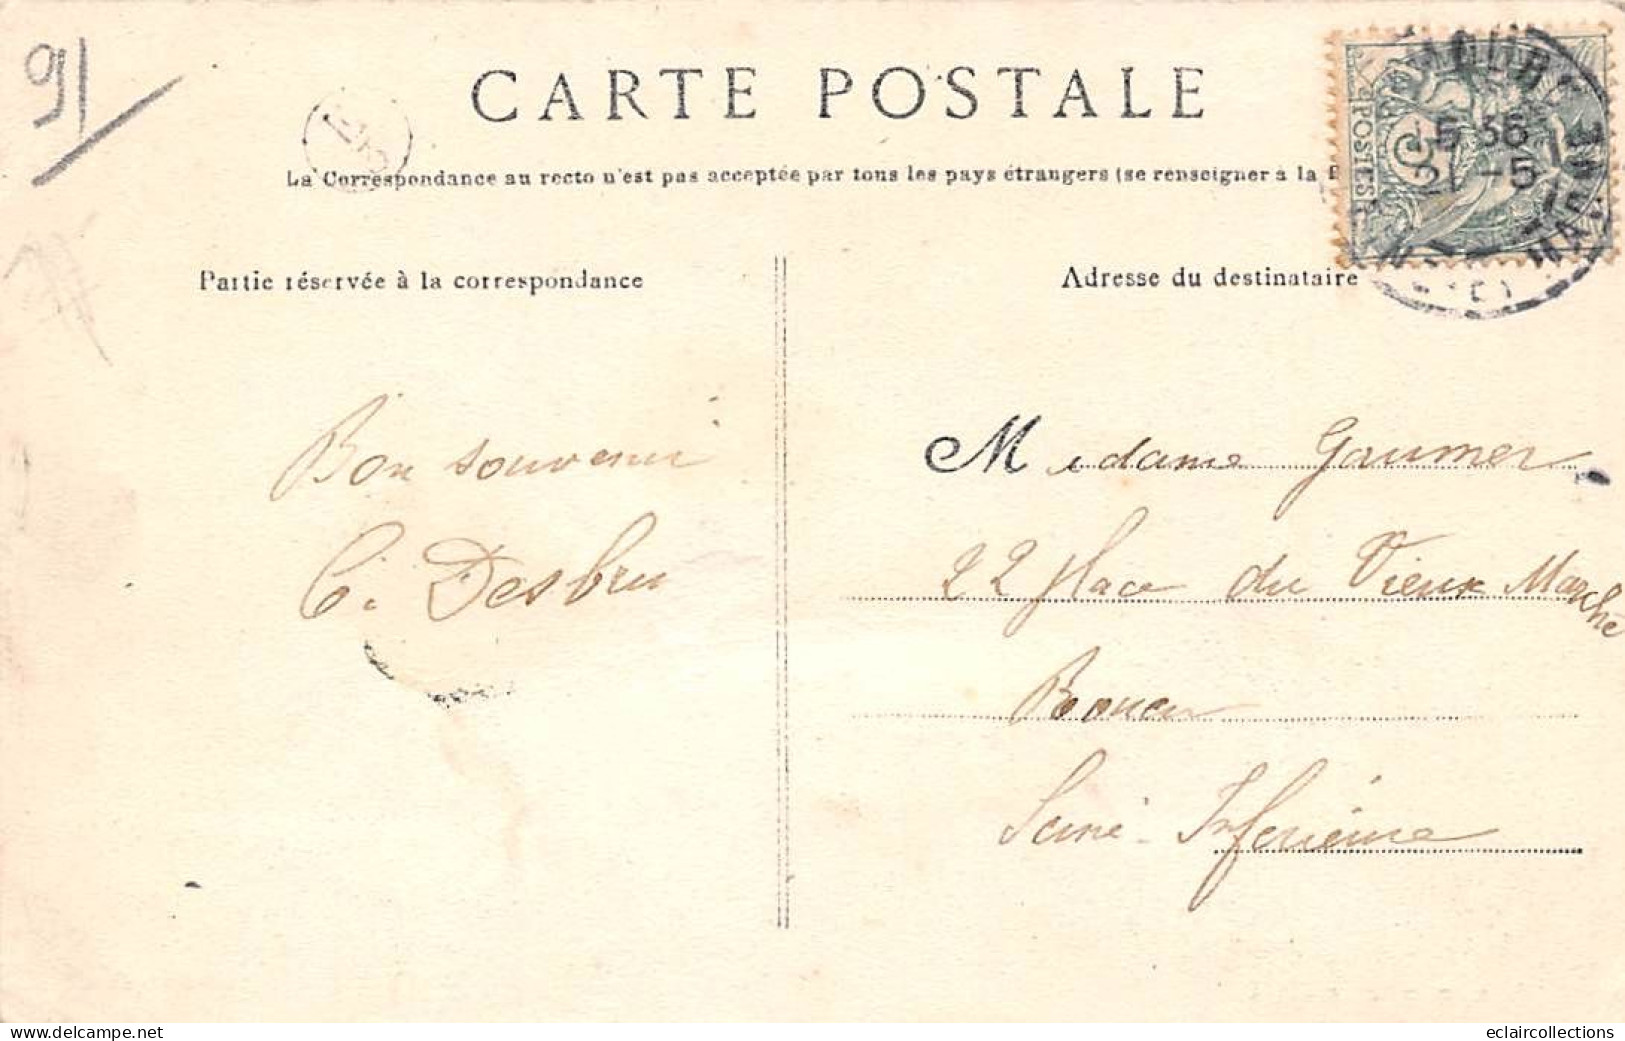 91
CARTE POSTALE
La Correspondance au recto n'est pas acceptée par tous les pays étrangers (se renseigner à la
POSTES
15 36
21 -5
MARNE
Partie réservée à la correspondance
Adresse du destinataire
Bon souvenir
C. Desbru
Madame Gaumer
22 place du Vieux Marche
Rouen
Seine-Inférieure
eclaircollections
www.delcampe.net